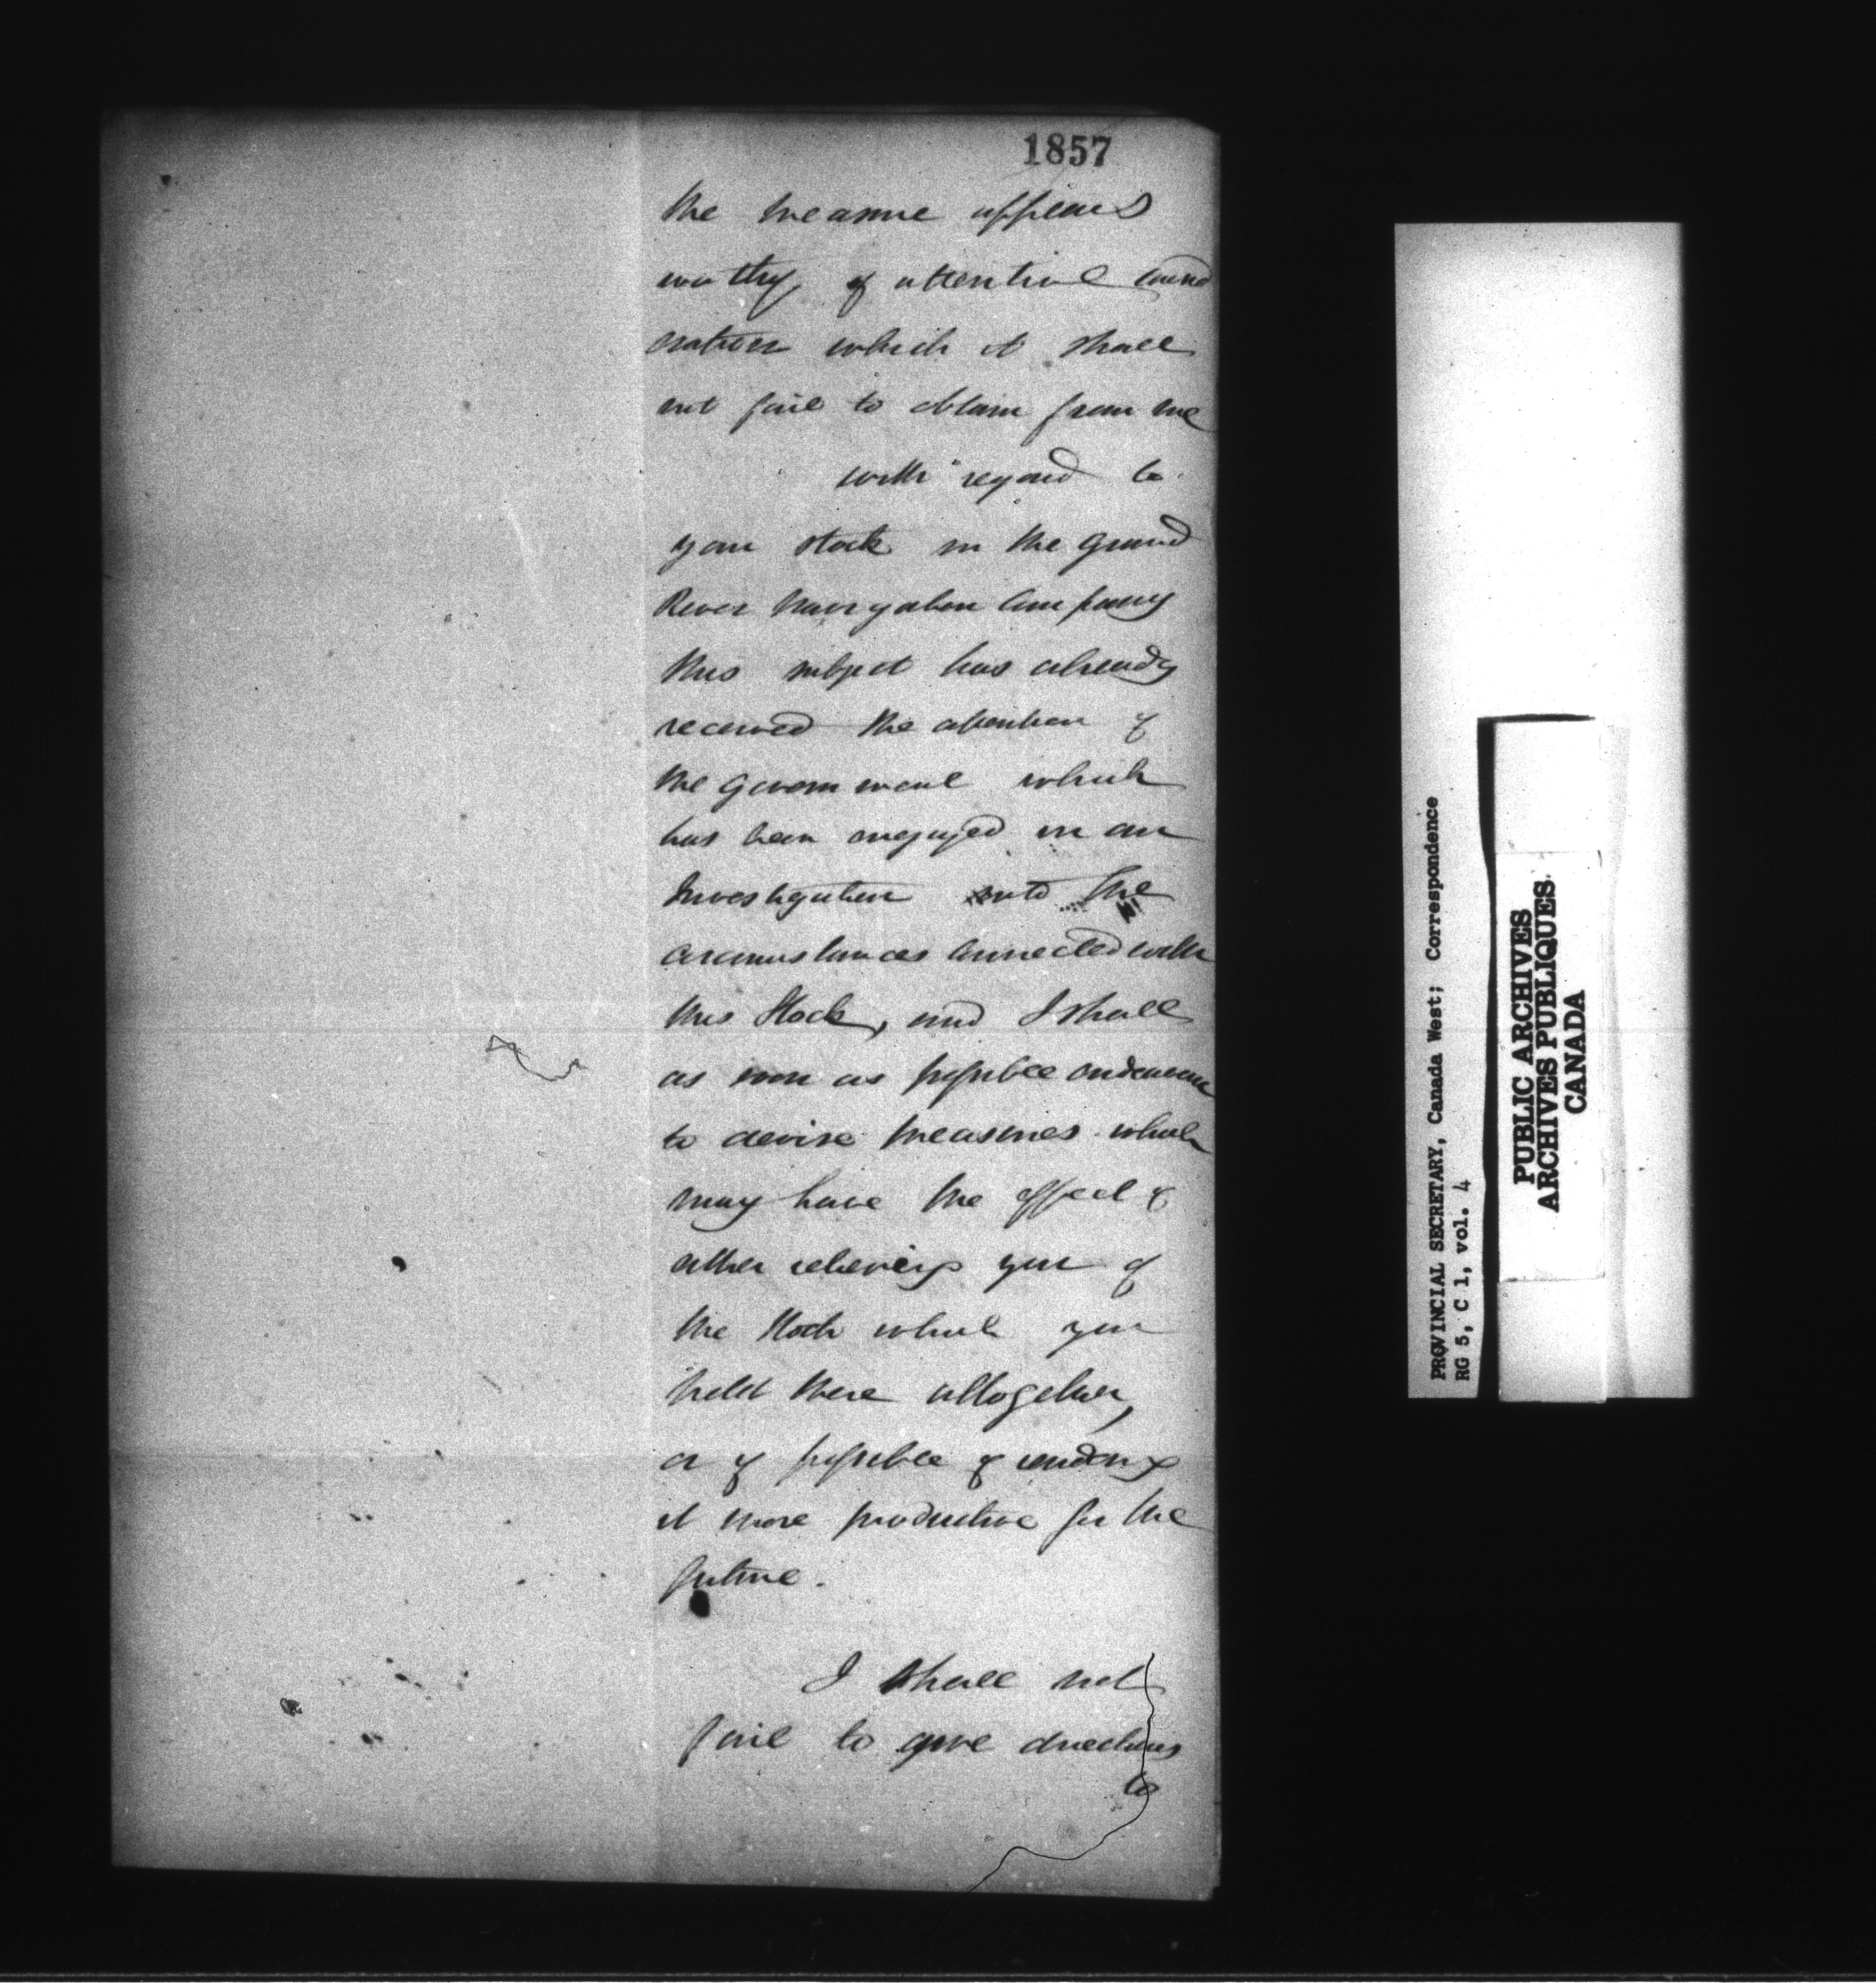 1857
the measure appears
worthy of attentive consid
eration which it shall
not fail to obtain from me
with regard to
your stock in the Grand
River Navigation Company
this subject has already
received the attention of
the Government which
has been engaged in an
Investigation into the
circumstances connected with
this Stock, and I shall
as soon as possible endeavour
to devise measures which
may have the effect of
either relieving you of
the Stock which you
hold there altogether,
or if possible of rendering
it more productive for the
future.
I shall not
fail to give directions
to
PROVINCIAL SECRETARY, Canada West; Correspondence
RG 5, C 1, vol. 4
PUBLIC ARCHIVES
ARCHIVES PUBLIQUES
CANADA